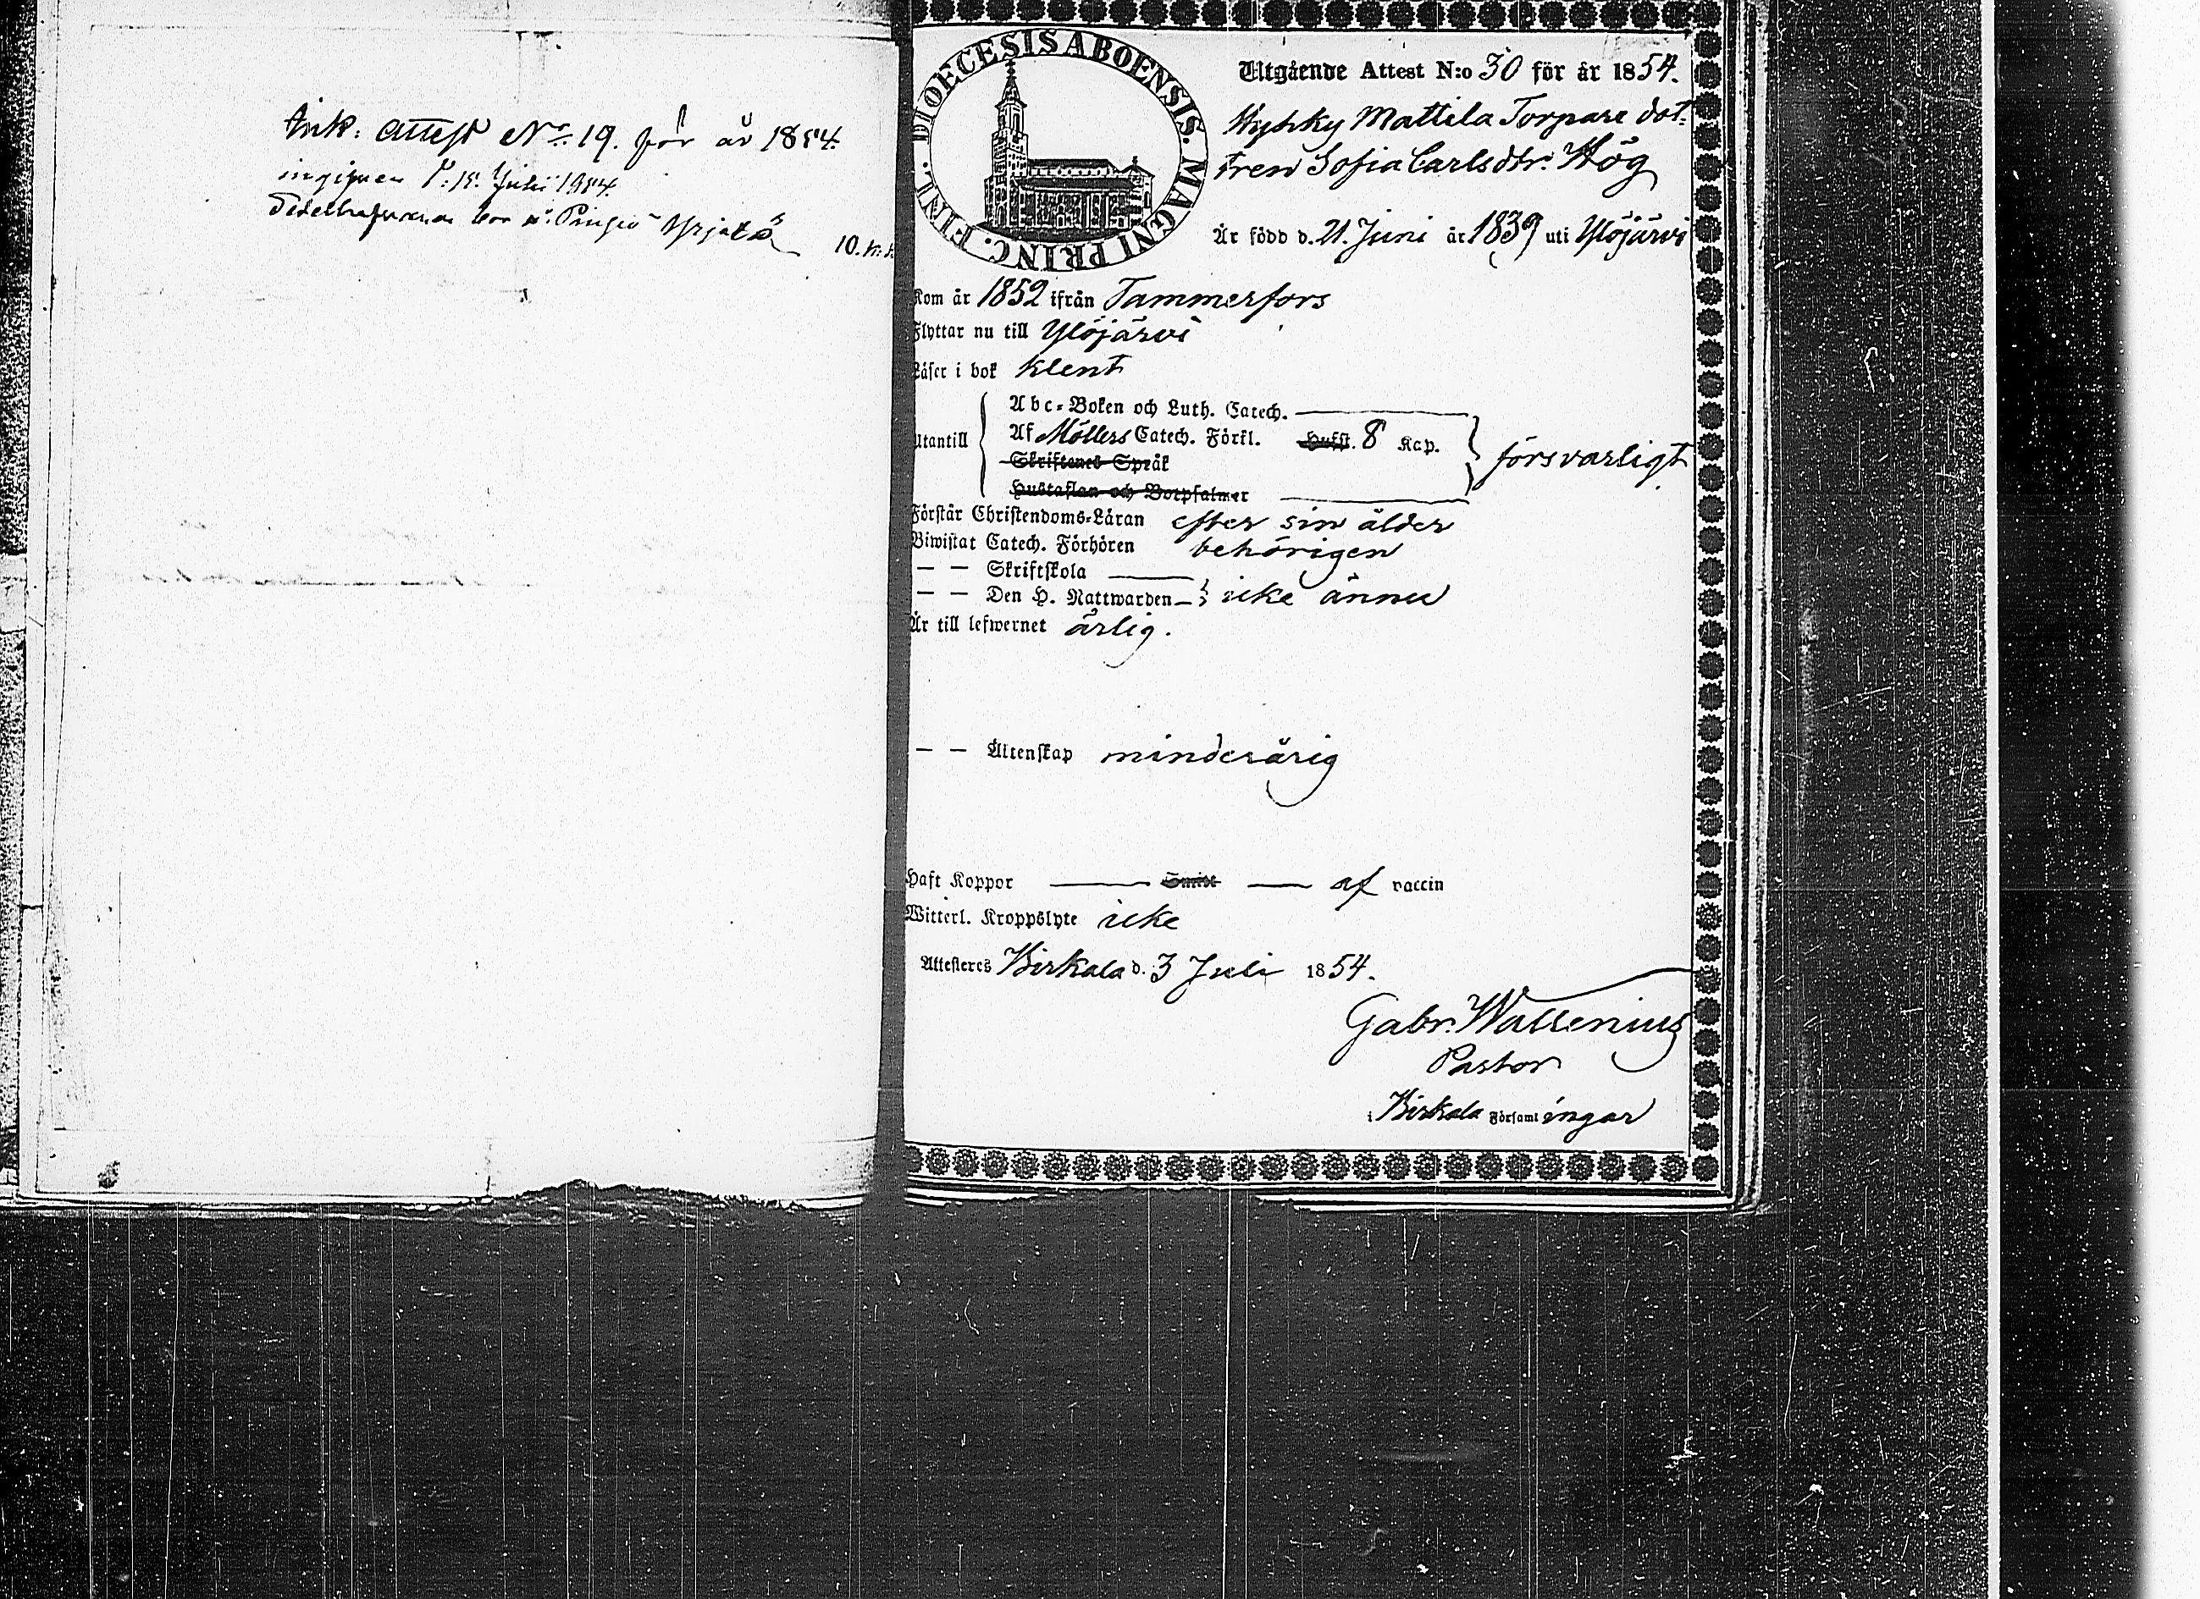 Ink: Attest No. 19. för år 1854.
ingifven d: 15 Julii 1854.
10.
DIOECESIS ABOENSIS. MAGNI PRINC. FINL.
Utgående Attest N:o 30 för år 1854.
Mattila Torpare dot-
tren Sofia Carlsdtr. Hög
Är född d. 21. Juni år 1839 uti Ylöjärvi
Kom år 1852 ifrån Tammerfors
Flyttar nu till Ylöjärvi
Läser i bok klent
Abc-Boken och Luth. Catech.
Utantill Af Möllers Catech. Förkl. Hufst. 8 Kap. försvarligt
Skriftenes Språk
Hustaflan och Botpsalmer
Förstår Christendoms-Läran efter sin ålder
Biwistat Catech. Förhören behörigen
— — Skriftskola
— — Den H. Nattwarden icke ännu
Är till lefwernet ärlig.
— — Äktenskap minderårig
Haft Koppor af vaccin
Witterl. Kroppslyte icke
Attesteres Birkala d. 3 Juli 1854.
Gabr. Wallenius
Pastor
i Birkala Församlingar